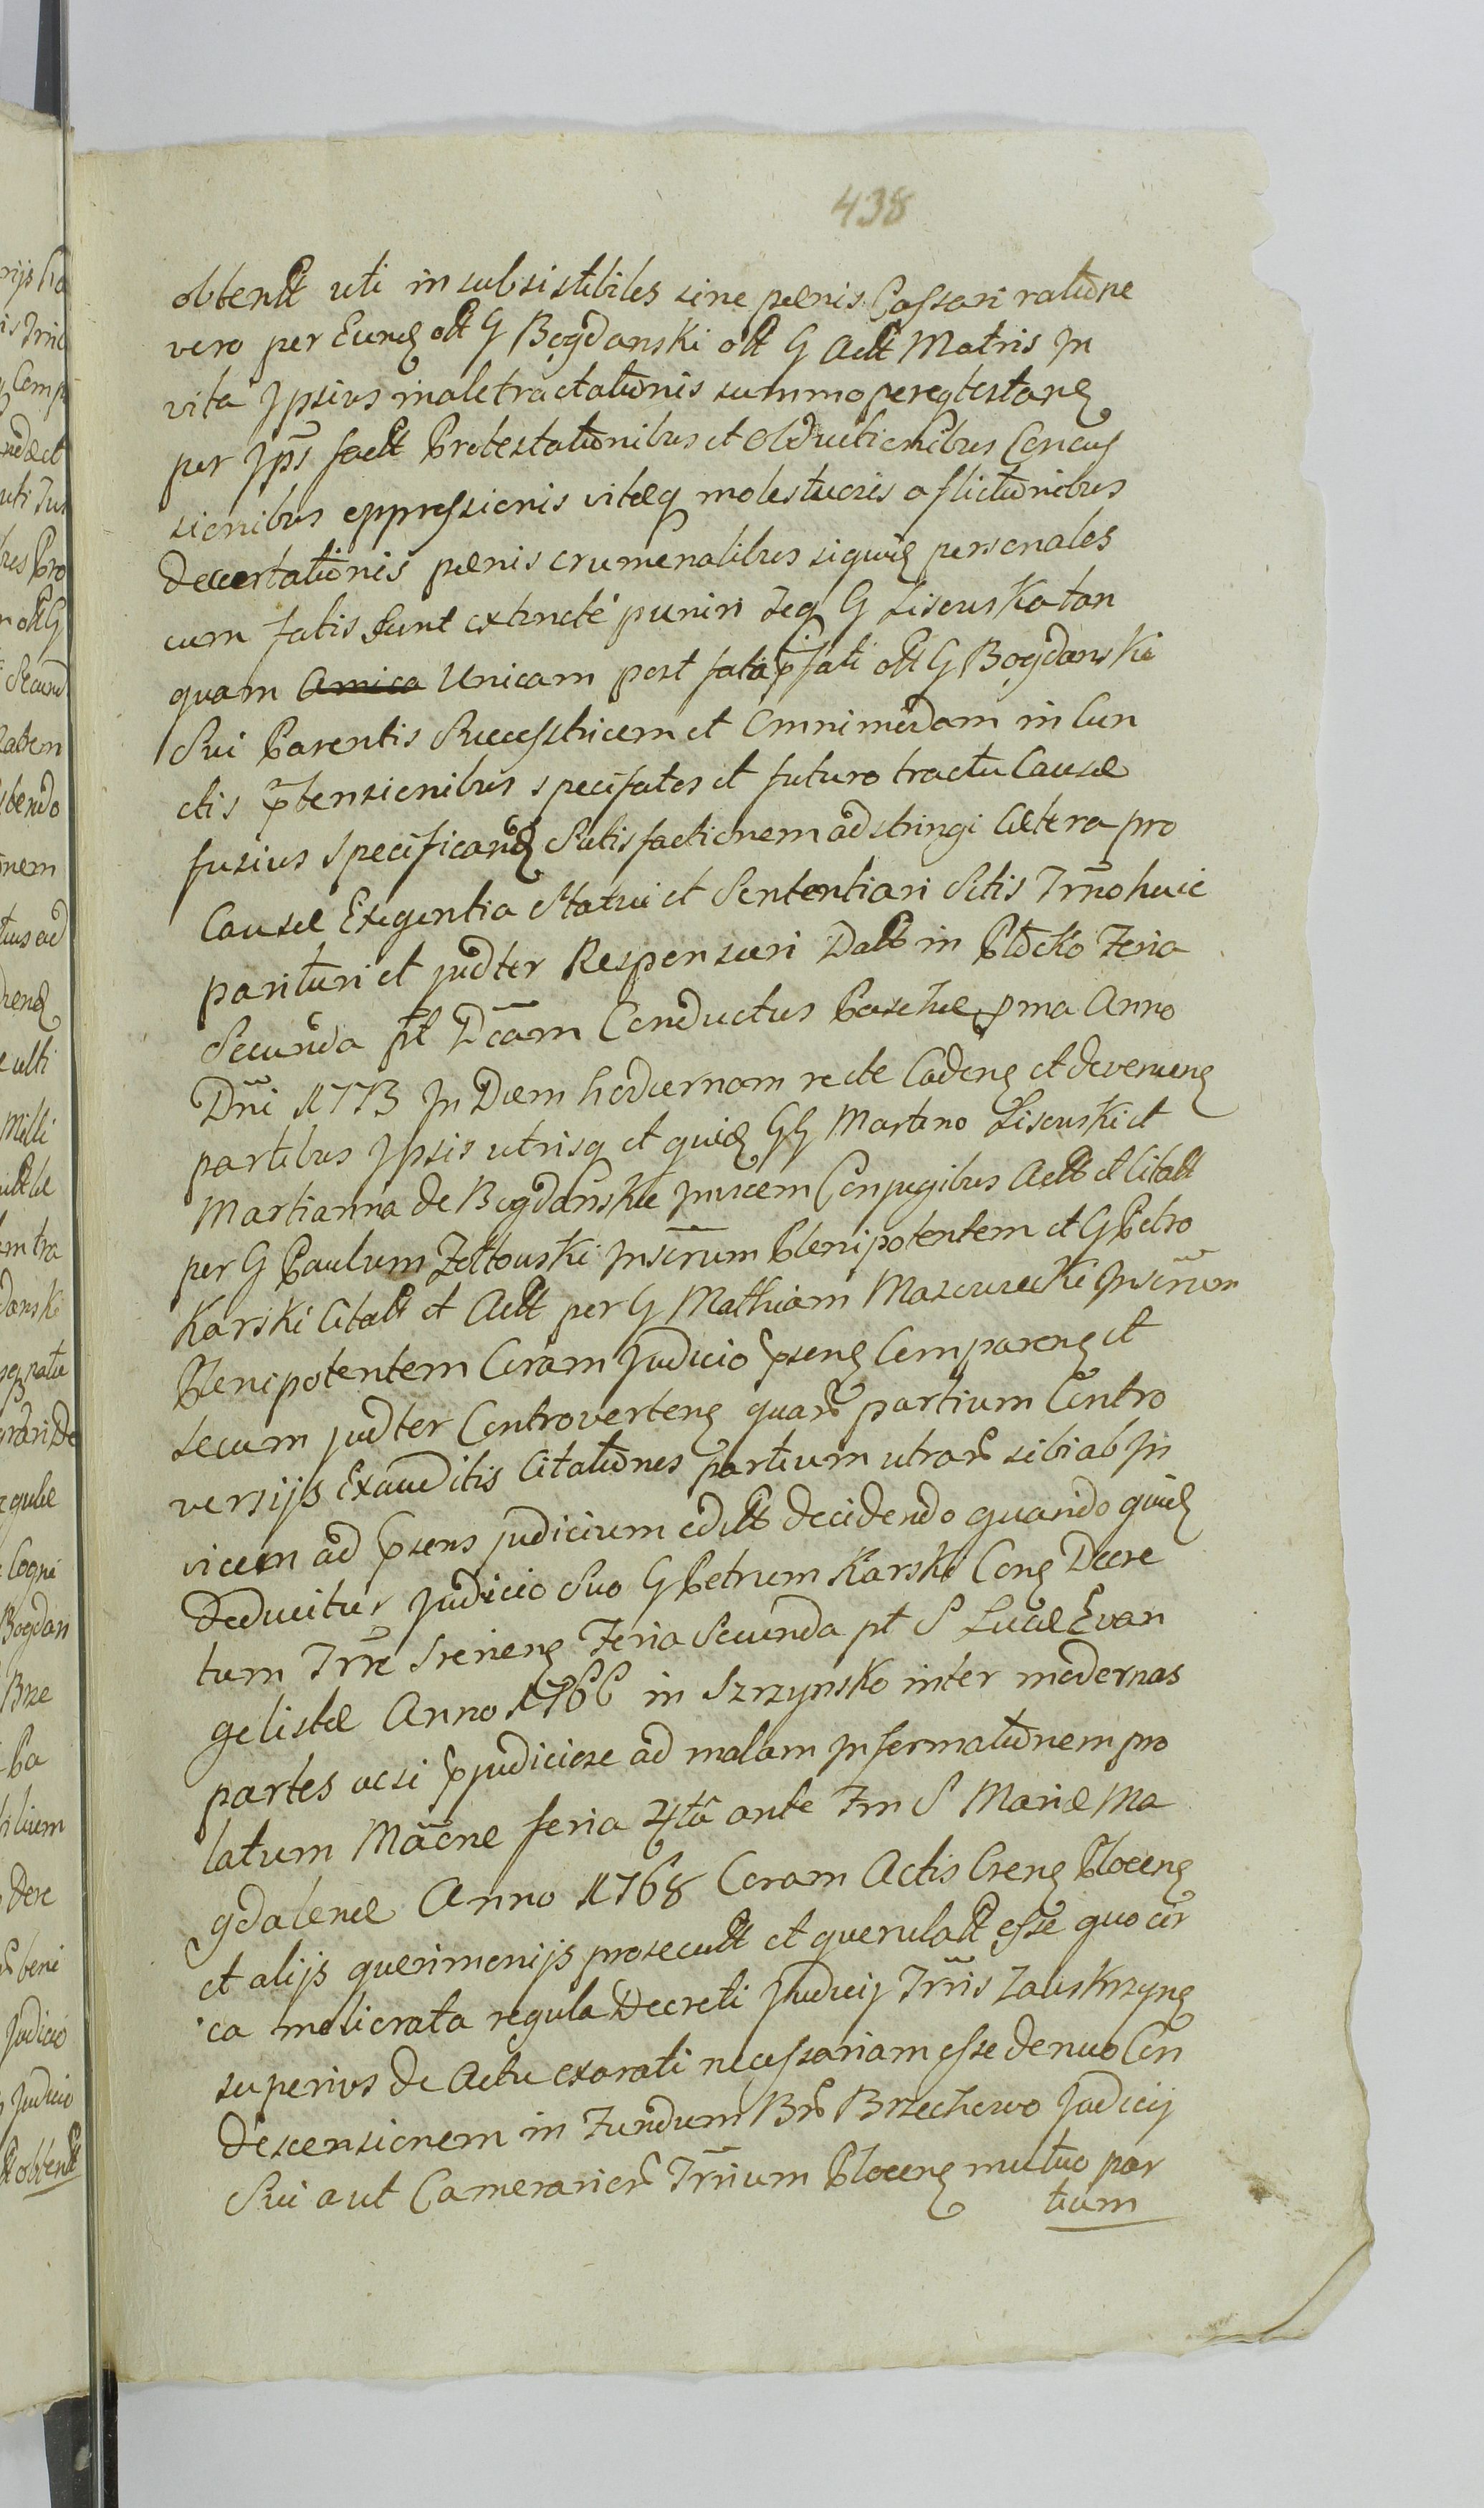 438
obtentt uti insubsistibiles sine pœnis Cassari ratione
vero per Eund olt G Bogdanski olt G Actt Matris In
vita Ipsius maletractationis summopereq testand
per Ips factt Protestationibus et obductionibus Concus
sionibus oppressionis vitæq molestuoris aflictionibus
decertationis pœnis crumenalibus siquid personales
cum fatis sunt extincté puniri Teq G Lisouska tan
quam Unicam post fata pfati olt G Bogdanski
Sui Parentis Successtricem et Omnimodam in Cun
ctis ptensionibus specifatos et futuro tractu Causæ
fusius specificand Satisfactionem adstringi Cætera pro
Causæ Exigentia Statui et Sententiari Sitis Trmo huic
parituri et judter Responsuri Datt in Płocko Feria
Secunda pt Dcam Conductus Paschæ pma Anno
Dni 1773 In Diem hodiernam recte Cadens et devenien
partibus Ipsis utrisq et quid GG Martino Lisouski et
Martianna de Bogdanskie Invicem Conjugibus Actt et Citatt
per G Paulum Zołtouski Inscrum Plenipotentem et G Petro
Karski Citatt et Actt per G Mathiam Mazowiecki Inscrum
Plenipotentem Coram Judicio psens Comparens et
secum judter Controvertens quar partium Contro
versijs Exauditis Citationes partium utrar sibi ab In
vicem ad psens judicium editt decidendo quando quid
Deducitur Judicio Suo G Petrum Karski Cong Decre
tum Trre Sreneng Feria Secunda pt S Lucæ Evan
gelistæ Anno 1766 in Szrzynsko inter modernas
partes acsi pjudiciose ad malam Informationem pro
latum Macne feria 4ta ante Fm S Mariæ Ma
gdalenæ Anno 1768 Coram Actis Creng Płoceng
et alijs querimonijs prosecutt et querulatt esse quo cir
ca meliorata regula Decreti Judicij Trris Zauskrzyng
superius de Actu exarati necessariam esse denuo Con
descensionem in Fundum Br Brzechowo Judicij
Sui aut Camerarior Trrium Płoceng mutuo par
tium